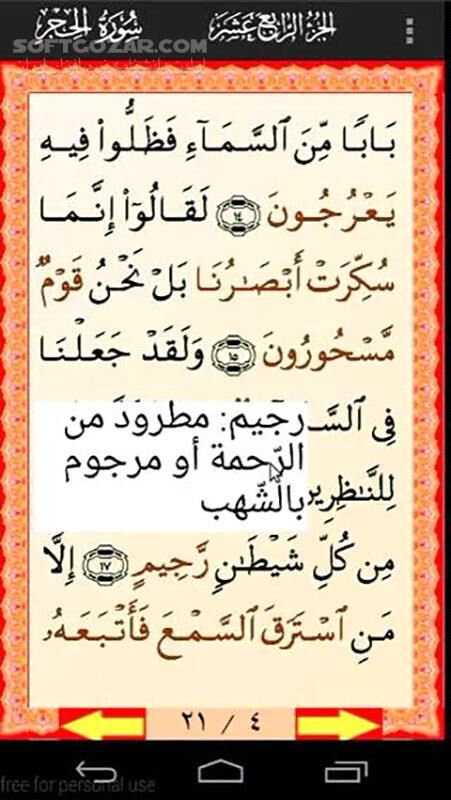 الجزء الرابع عشر
سورة الحجر
SOFTGOZAR.COM
اولین دانشنامه نرم افزار ایران
بَابًا مِّنَ ٱلسَّمَآءِ فَظَلُّوا۟ فِيهِ
يَعْرُجُونَ ١٤ لَقَالُوٓا۟ إِنَّمَا
سُكِّرَتْ أَبْصَٰرُنَا بَلْ نَحْنُ قَوْمٌ
مَّسْحُورُونَ ١٥ وَلَقَدْ جَعَلْنَا
فِى ٱلسَّ
رجيم: مطرودَ من
الرّحمة أو مرجوم
بالشّهب
لِلنَّٰظِرِين
مِن كُلِّ شَيْطَٰنٍ رَّجِيمٍ ١٧ إِلَّا
مَنِ ٱسْتَرَقَ ٱلسَّمْعَ فَأَتْبَعَهُۥ
٤ / ٢١
free for personal use